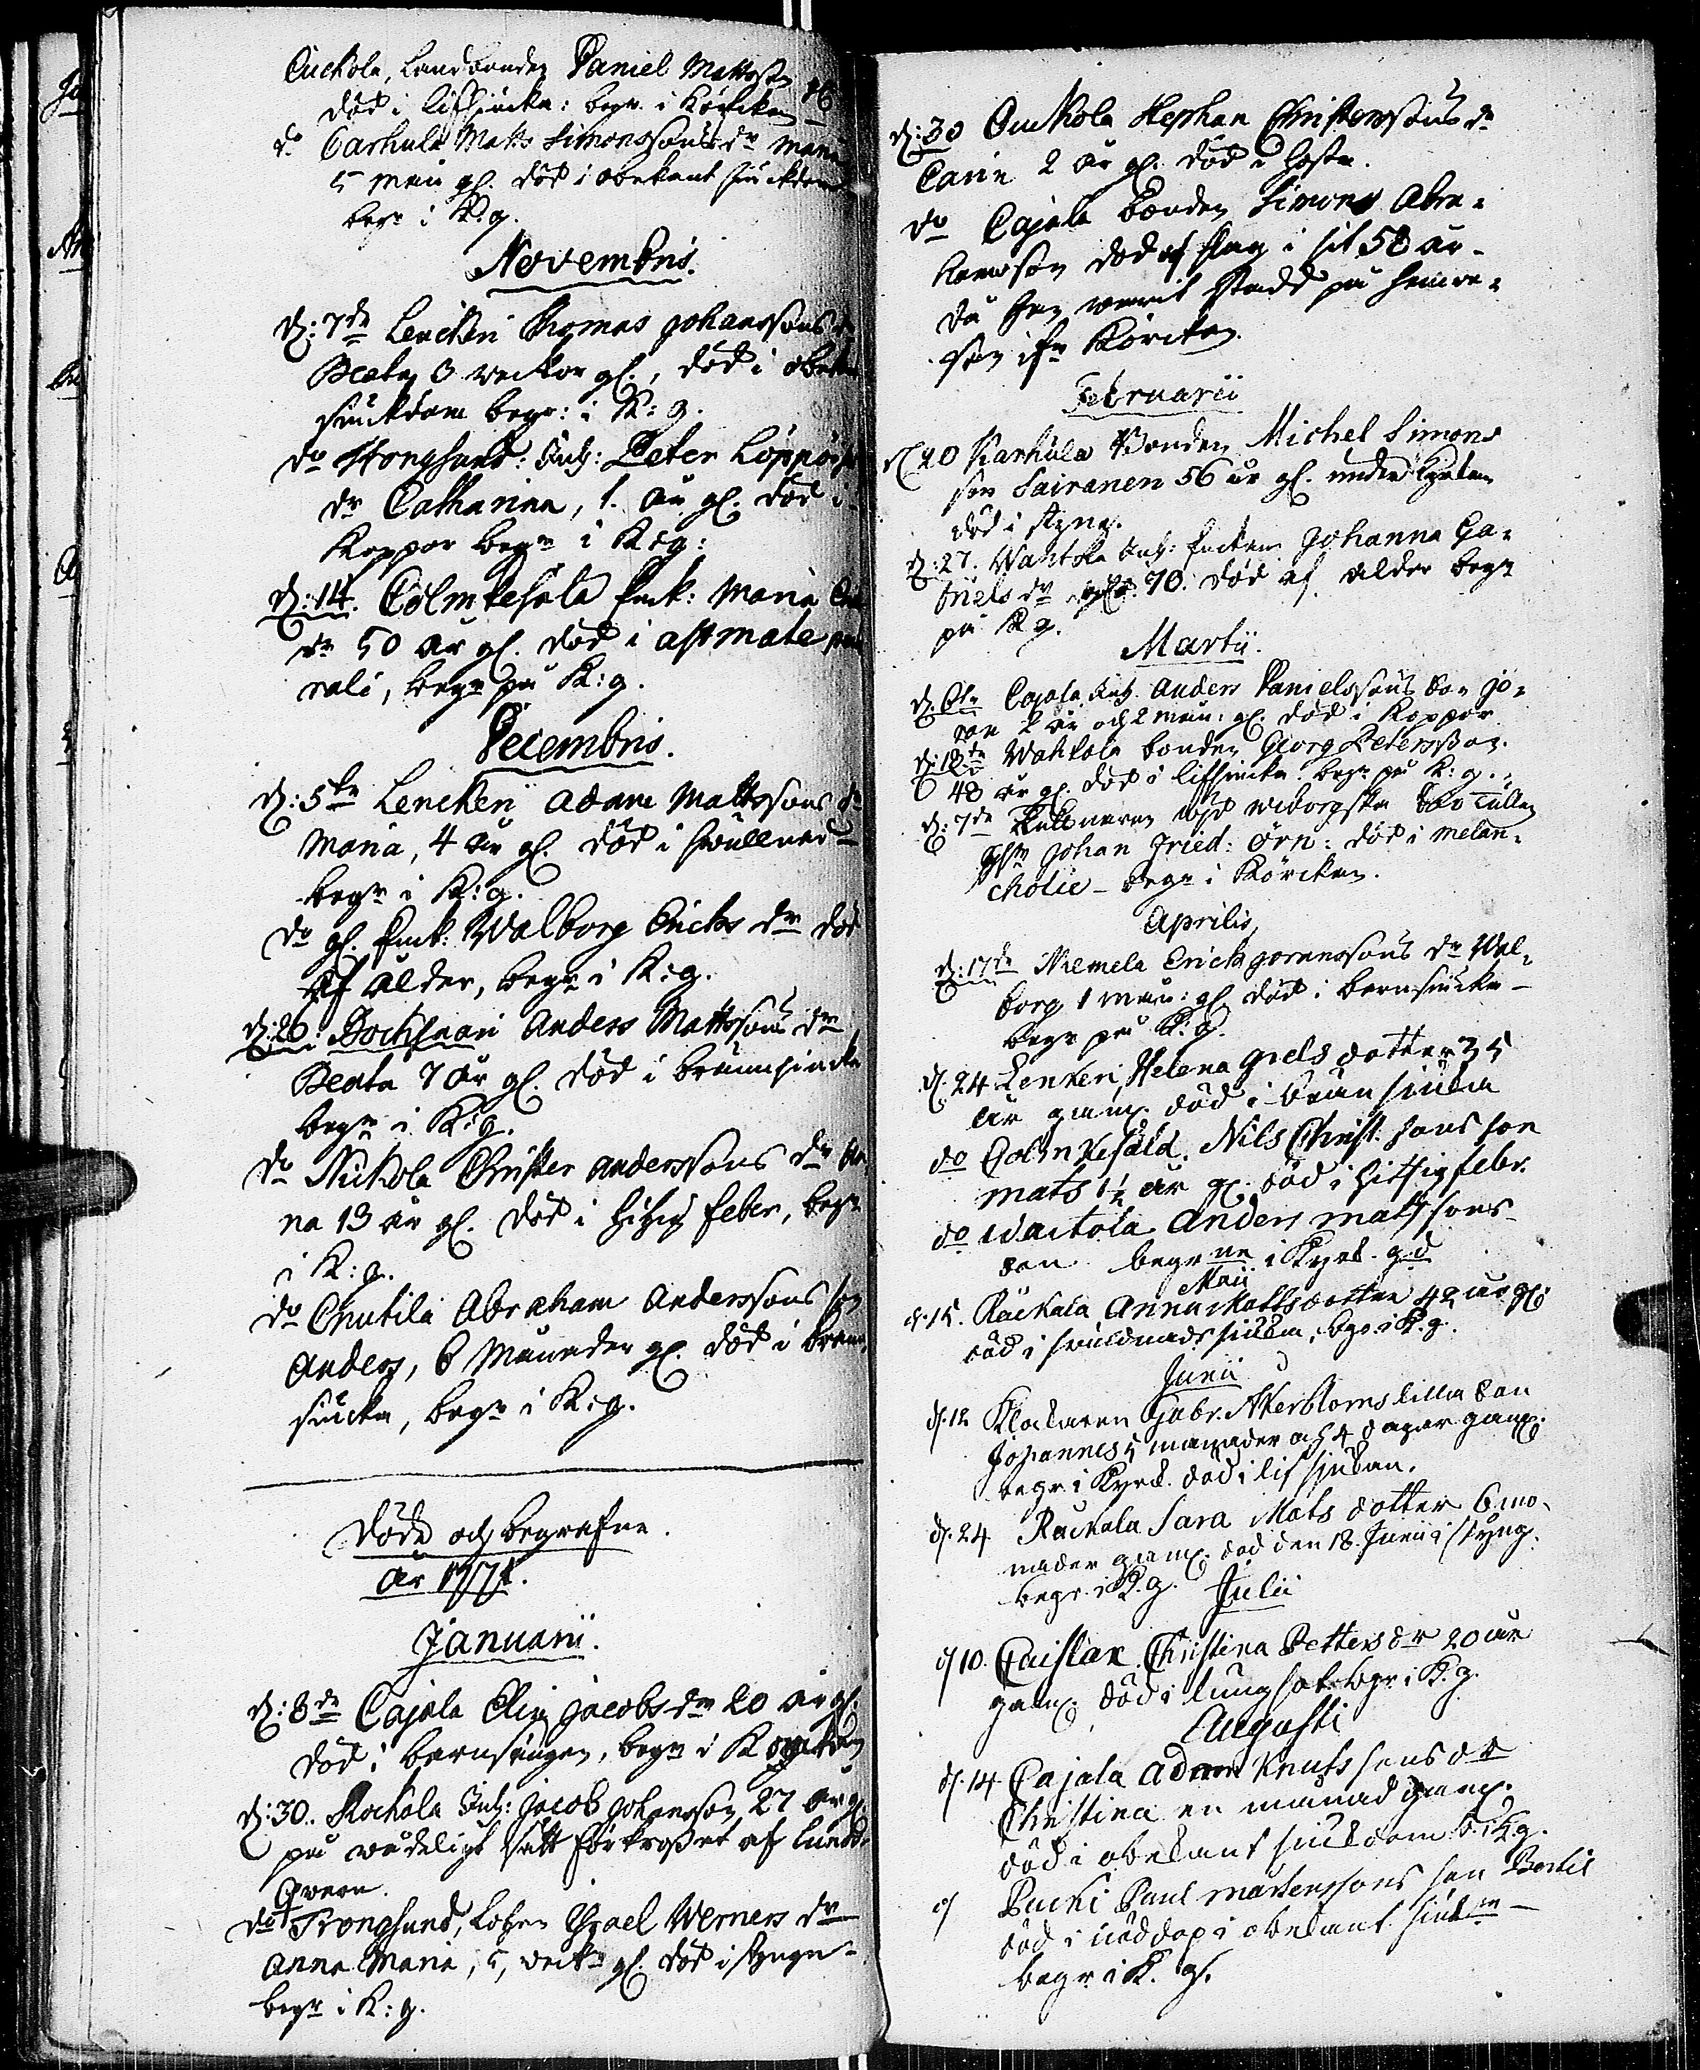 Cuckola, Landbonden Daniel Mattsson
död i lifsiucka: begr. i Körckan
do Carhula Matts Simonssons dr Maria
5 mån gl. död i obekant siuckdom
begr i K:g.
Novembris.
d: 7de Lenckeri Thomas Johanssons
Beata 3 veckor gl., död i obekant
siuckdom begr: i K:g.
do Trongsund: Inh: Peter Loppöis
dr Catharina, 1. år gl. död i
Koppor begr i K:g:
d: 14. Colmkesala Enk: Maria
dr 50 år gl. död i astmate
rali, begr på K:g.
Decembris.
d: 5te Lenckeri Adam Mattssons dr
Maria, 4 år gl. död i swullnad
begr i K:g.
do gl. Enk: Walborg Erichs dr död
af ålder, begr i K:g.
d: 26. Bochsaari Anders Mattssons dr
Beata 7 år gl. död i brännsiucka
begr i K:g.
do Nickola Christer Anderssons dr An
na 13 år gl. död i hitzig feber, begr
i K:g.
do Cnutila Abraham Anderssons son
Anders, 6 månader gl. död i bränn
siucka, begr i K:g.
Döde och begrafne
år 1771.
Januarii.
d: 8de Cajala Elin Jacobs dr 20 år gl.
död i barnsängen, begr i Körckan
d: 30. Rockola Inh: Jacob Johansson 27 år gl
på wådeligt sätt förkrossat af
qwarn.
do Trongsund, Lotzen Israel Werners dr
Anna Maria, 5, weck gl. död i styng
begr i K:g.
d: 30 Cuckola Stephan Christerssons dr
Carin 2 år gl. död i hosta.
do Cajala bonden Simon Abra-
hamsson död af slag i sit 58 år
då han warit stadd på hemre-
san ifrn Körckan.
Februarii
d 20 Karhula Bonden Michel Simons
son Sairanen 56 år gl. under
död i styng.
d: 27. Wahtola Inh: Enckan Johanna Ga-
briels dr 70. död af ålder begr
på K g.
Martii.
d. 6te Cajala Inh. Anders Danielssons son Jö-
ran 2 år och 2 mån: gl. död i Koppor
d: 18de Wahtola bonden Georg Petersson.
48 år gl. död i lifsiucka. begr på K:g.
d: 7de Tullnären wid Wiborgska
Johan Fried: Örn: död i melan-
cholie - begr i Körckan.
Aprilis
d: 17de Niemela Erich Joranssons dr Wal-
borg 1 mån: gl död i barnsiucka -
begr på K:g.
d. 24 Lenkeri Helena Grels dotter 35
år gamel. död i bränsiucka
do Colmkesald. Nils Christ. sons son
Mats 1½ år gl. död i hittsig febr.
do Waitola Anders Matssons
son begr i Kyrk. gd
Maii
d. 15. Räckala Anna Matts dotter 42 år gl:
död i swulnads siucka, bgr. i K. g.
Junii
d. 12 Klockaren Gabr. Akerbloms lilla son
Johannes 5 månader och 4 dagar gamel.
begr. i Kyrk. död i lif siukan.
d. 24 Räckala Sara Mats dotter 6 mo-
nader gamel. död den 18. Junii i styng.
begr. i K. g.
Julii
d 10. Christina Petters dr 20 år
gamel. död i lungsot. bgr. i K. g.
Augusti
d. 14 Cajala Adam Knutssons dr
Christina en månad gamel.
död i obekant siukdom b. i Kg.
d Packi Paul Mårtenssons son Bertil
död i nöddop i obekant siukm
begr. i K. g.